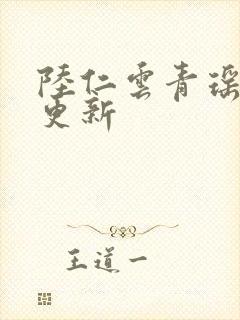 陸仁雲青瑶
更新
王道一